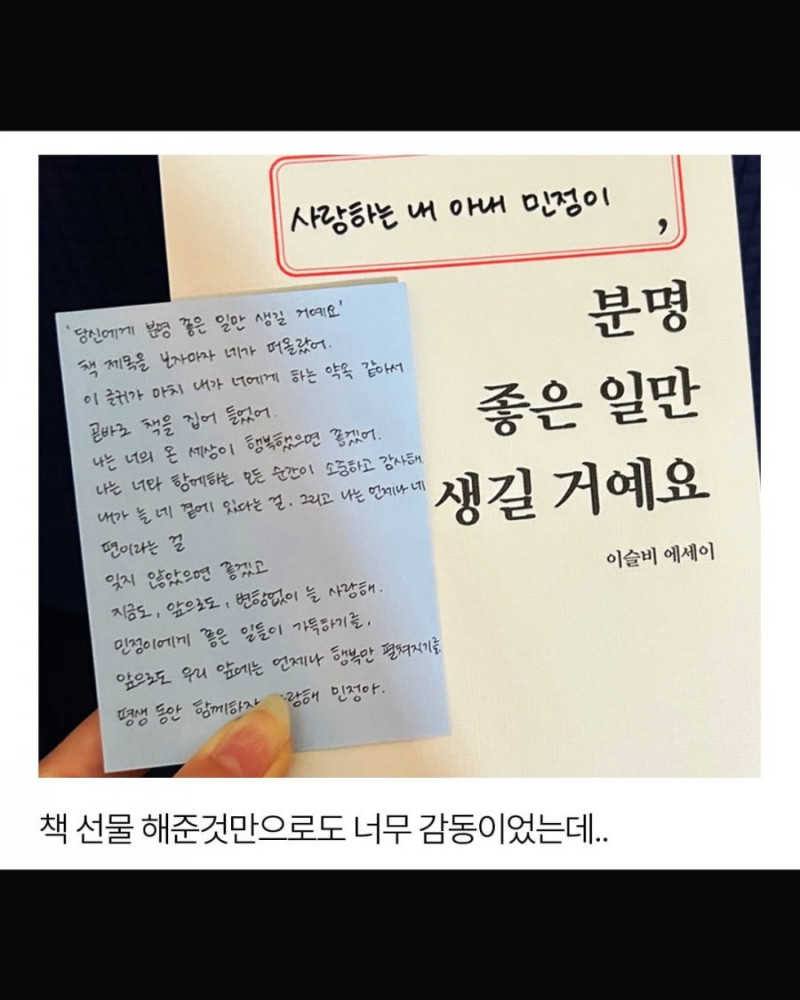 사랑하는 내 아내 민정이,
분명
좋은 일만
생길 거예요
이슬비 에세이
'당신에게 분명 좋은 일만 생길 거예요'
책 제목을 보자마자 네가 떠올랐어.
이 글귀가 마치 내가 너에게 하는 약속 같아서
곧바로 책을 집어 들었어.
나는 너의 온 세상이 행복했으면 좋겠어.
나는 너와 함께하는 모든 순간이 소중하고 감사해.
내가 늘 네 곁에 있다는 걸. 그리고 나는 언제나 네
편이라는 걸
잊지 않았으면 좋겠고
지금도, 앞으로도, 변함없이 늘 사랑해.
민정이에게 좋은 일들이 가득하기를,
앞으로도 우리 앞에는 언제나 행복만 펼쳐지기를
평생 동안 함께하자 랑해 민정아.
책 선물 해준것만으로도 너무 감동이었는데..